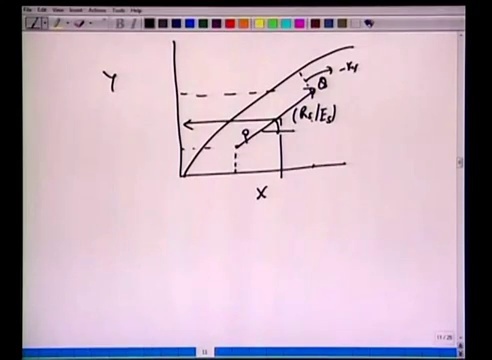 File Edit View Insert Actions Tools Help
Y
-x,y
Q
(Rs/Es)
P
X
11
11/25